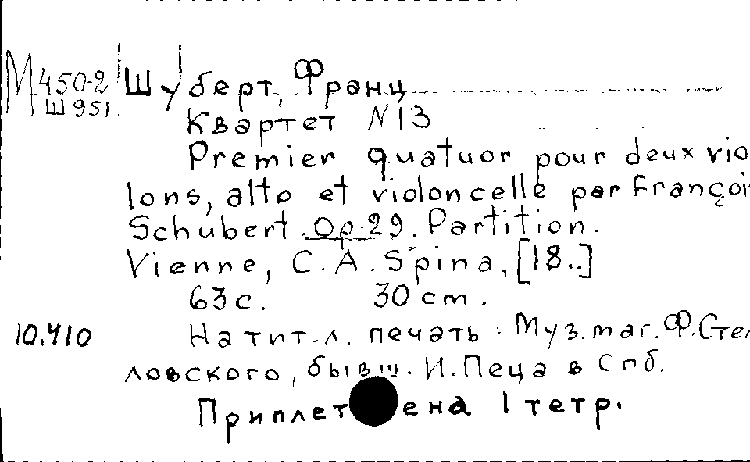 М450-2 Шуберт, Франц
Ш951.
Квартет N13
Premier quatuor pour deux vio
lons, alto et violoncelle par Françoi
Schubert. Op. 29. Partition.
Vienne, C. A. Spina, [18..]
63 с. 30 cm.
10.410 На тит. л. печать: Муз. маг. Ф. Стел
ловского, бывш. И. Пеца в Спб.
Приплетена 1 тетр.